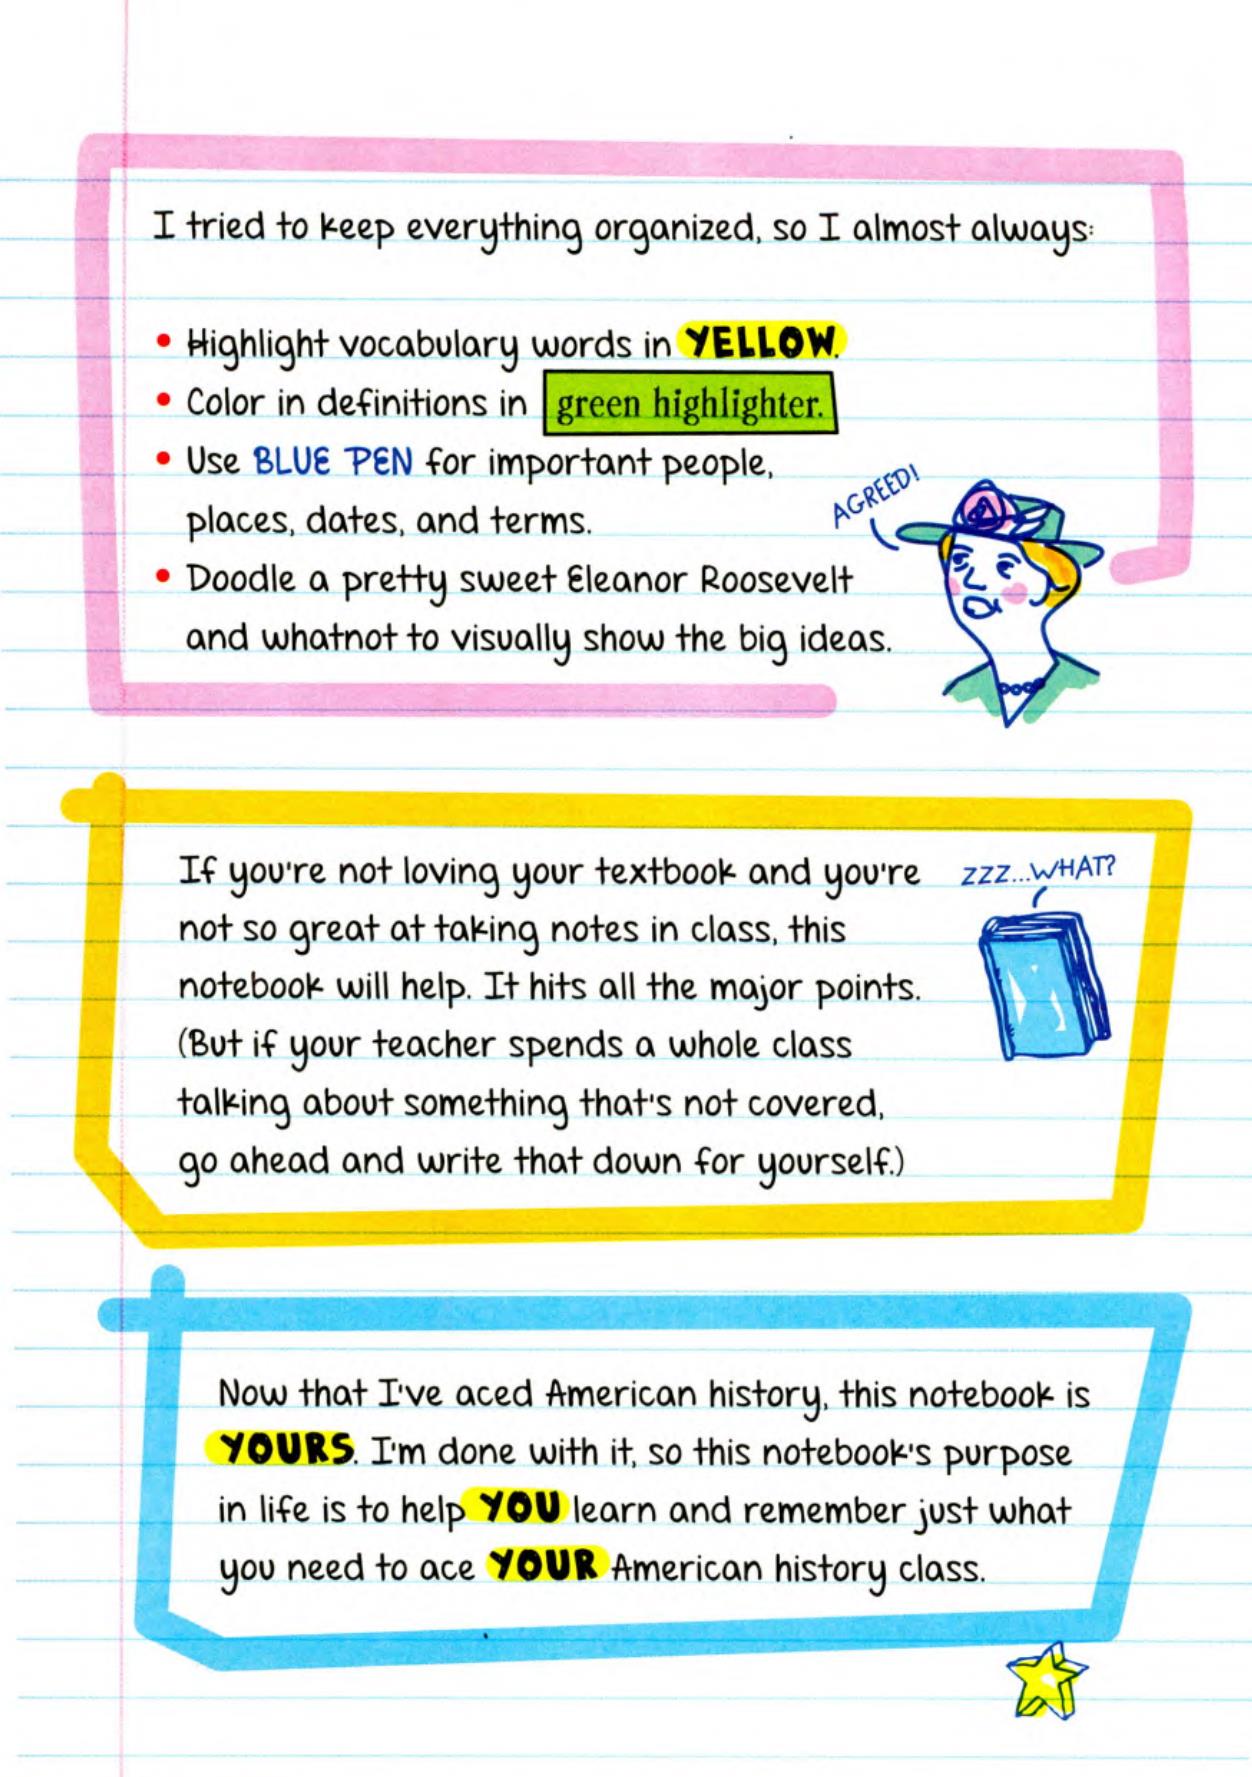 I tried to keep everything organized, so I almost always:
• Highlight vocabulary words in YELLOW.
• Color in definitions in green highlighter.
• Use BLUE PEN for important people,
places, dates, and terms.
AGREED!
• Doodle a pretty sweet Eleanor Roosevelt
and whatnot to visually show the big ideas.
If you're not loving your textbook and you're
not so great at taking notes in class, this
notebook will help. It hits all the major points.
(But if your teacher spends a whole class
talking about something that's not covered,
go ahead and write that down for yourself.)
ZZZ...WHAT?
Now that I've aced American history, this notebook is
YOURS. I'm done with it, so this notebook's purpose
in life is to help YOU learn and remember just what
you need to ace YOUR American history class.